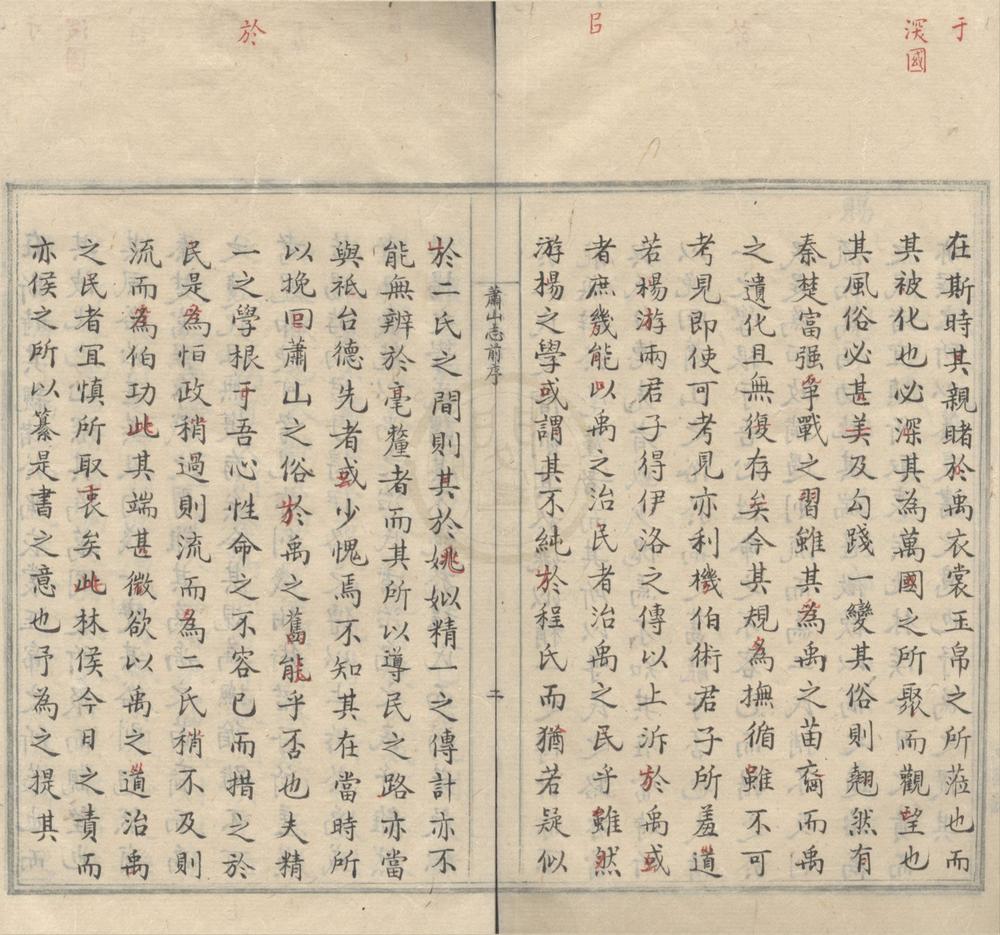 于
深國
㠯
於
在斯時其親睹於禹衣裳玉帛之所蒞也而
其被化也必深其為萬國之所聚而觀望也
其風俗必甚美及勾踐一變其俗則翹然有
秦楚富强爭戰之習雖其為禹之苗裔而禹
之遺化且無復存矣今其規為撫循雖不可
考見即使可考見亦利機伯術君子所羞道
若楊游兩君子得伊洛之傳以上泝於禹或
者庶幾能以禹之治民者治禹之民乎雖然
游楊之學或謂其不純於程氏而猶若疑似
蕭山志前序
二
於二氏之間則其於姚姒精一之傳計亦不
能無辨於毫釐者而其所以導民之路亦當
與祗台德先者或少愧焉不知其在當時所
以挽回蕭山之俗於禹之舊能乎否也夫精
一之學根于吾心性命之不容已而措之於
民是為怕政稍過則流而為二氏稍不及則
流而為伯功此其端甚微欲以禹之道治禹
之民者冝慎所取衷矣此林侯今日之責而
亦侯之所以纂是書之意也予為之提其